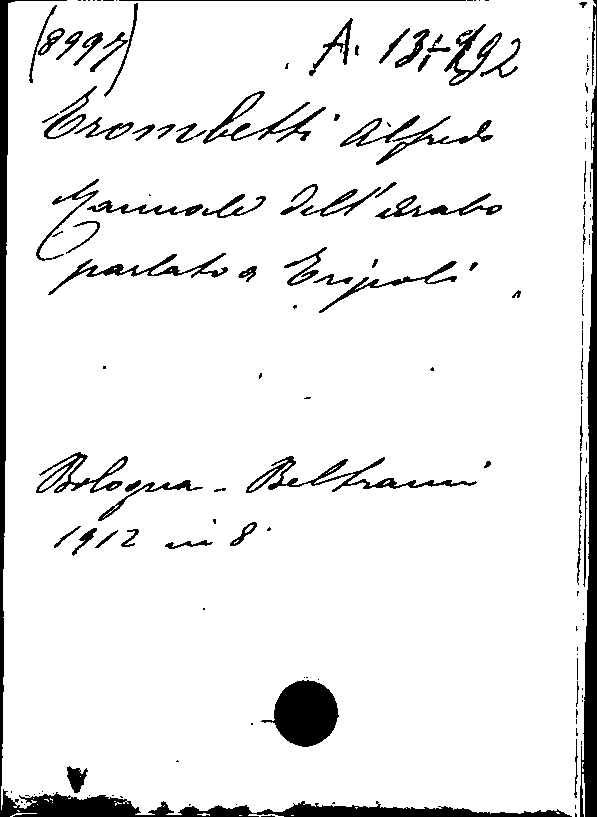 (8997)
Trombetti Alfredo
Manuale dell'arabo
parlato a Tripoli
Bologna - Beltrami
1912 in 8°